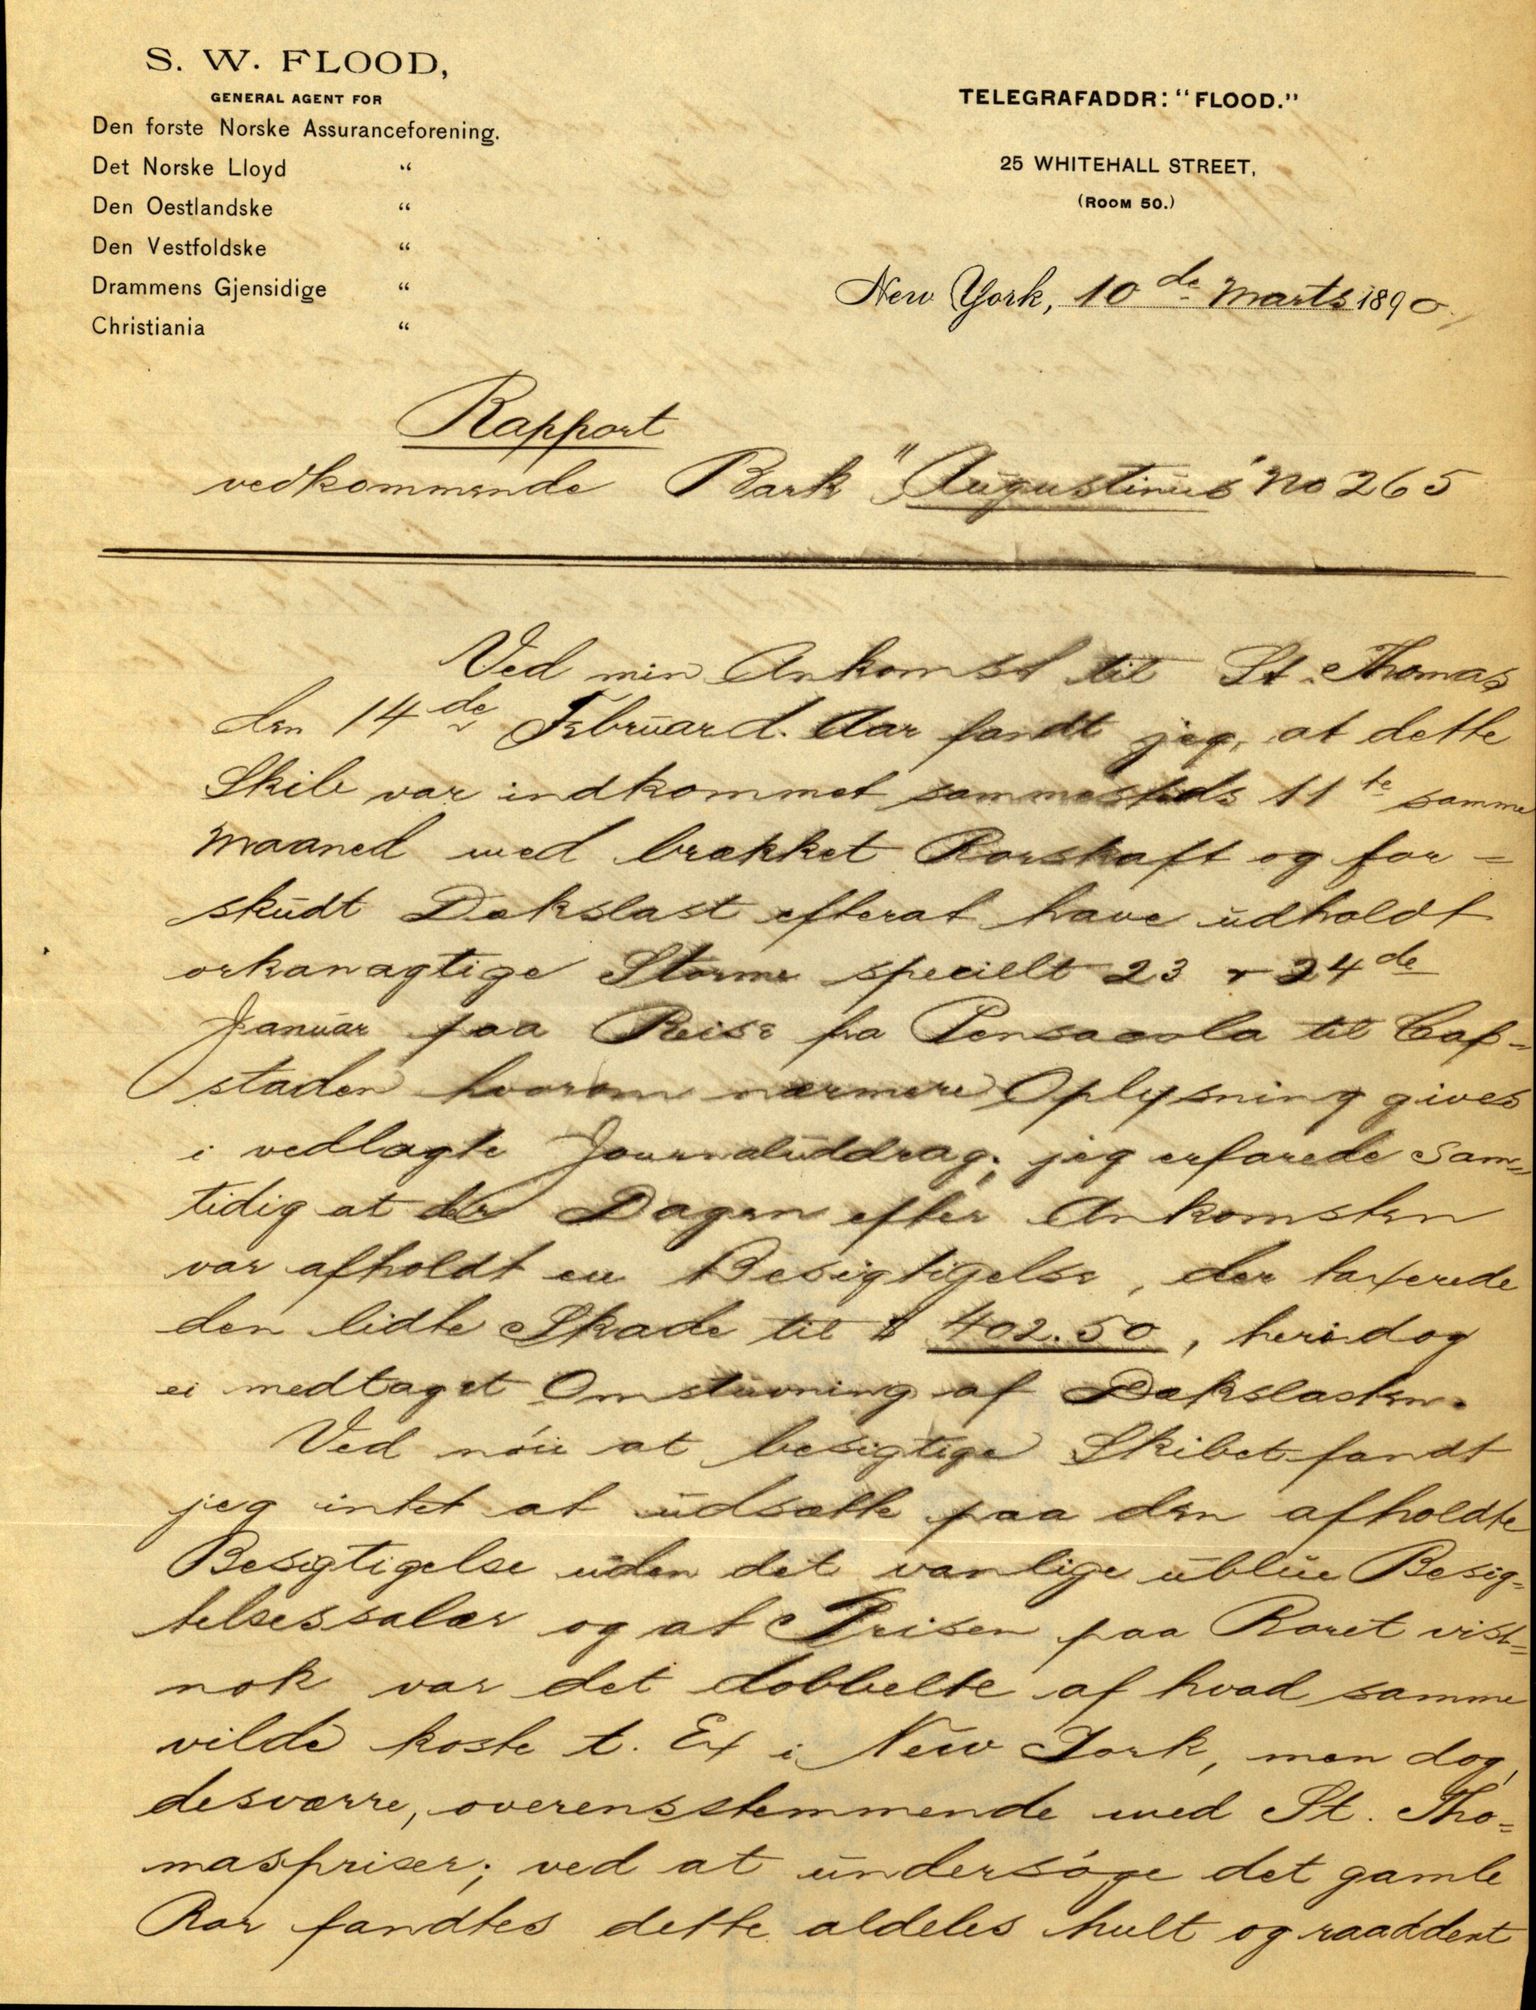 S. W. FLOOD,
GENERAL AGENT FOR
Den forste Norske Assuranceforening.
Det Norske Lloyd "
Den Oestlandske "
Den Vestfoldske "
Drammens Gjensidige "
Christiania "
TELEGRAFADDR: "FLOOD."
25 WHITEHALL STREET,
(ROOM 50.)
New York, 10de Marts 1890.
Rapport
vedkommende Bark "Augustinus" No 265
Ved min Ankomst til St. Thomas
den 14de Februar d. Aar fandt jeg, at dette
Skib var indkommet sammesteds 11te samme
Maaned med brækket Rorskaft og for=
skudt Dækslast efterat have udholdt
orkanagtige Storme specielt 23 & 24de
Januar paa Reise fra Pensacola til Cap=
staden hvorom nærmere Oplysning gives
i vedlagte Journaluddrag; jeg erfarede sam=
tidig at der Dagen efter Ankomsten
var afholdt en Besigtigelse, der taxerede
den lidte Skade til $ 402.50, heri dog
ei medtaget Omstuvning af Dækslasten.
Ved nøie at besigtige Skibet fandt
jeg intet at udsætte paa den afholdte
Besigtigelse uden det vanlige ublue Besig=
telsessalær og at Prisen paa Roret vist=
nok var det dobbelte af hvad samme
vilde koste t. Ex i New York, men dog,
desværre, overensstemmende med St. Tho=
maspriser; ved at undersøge det gamle
Ror fandtes dette aldeles hult og raaddent